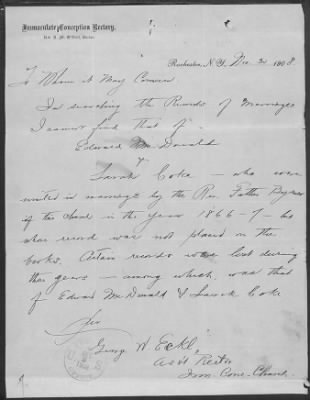 Immaculate Conception Rectory,
Rochester, N.Y., Dec 2 1908
To Whom it May Concern
In searching the Records of Marriages
I cannot find that of
Edward McDonald
&
Sarah Coke - who were
united in marriage by the Rev. Father
of this church in the year 1866-7 - his
record was not placed in the
books. Certain records were lost during
those years - among which was that
of Edward McDonald & Sarah Coke
George W. Eckl,
Ass't Rector
Imm. Conc. Church.